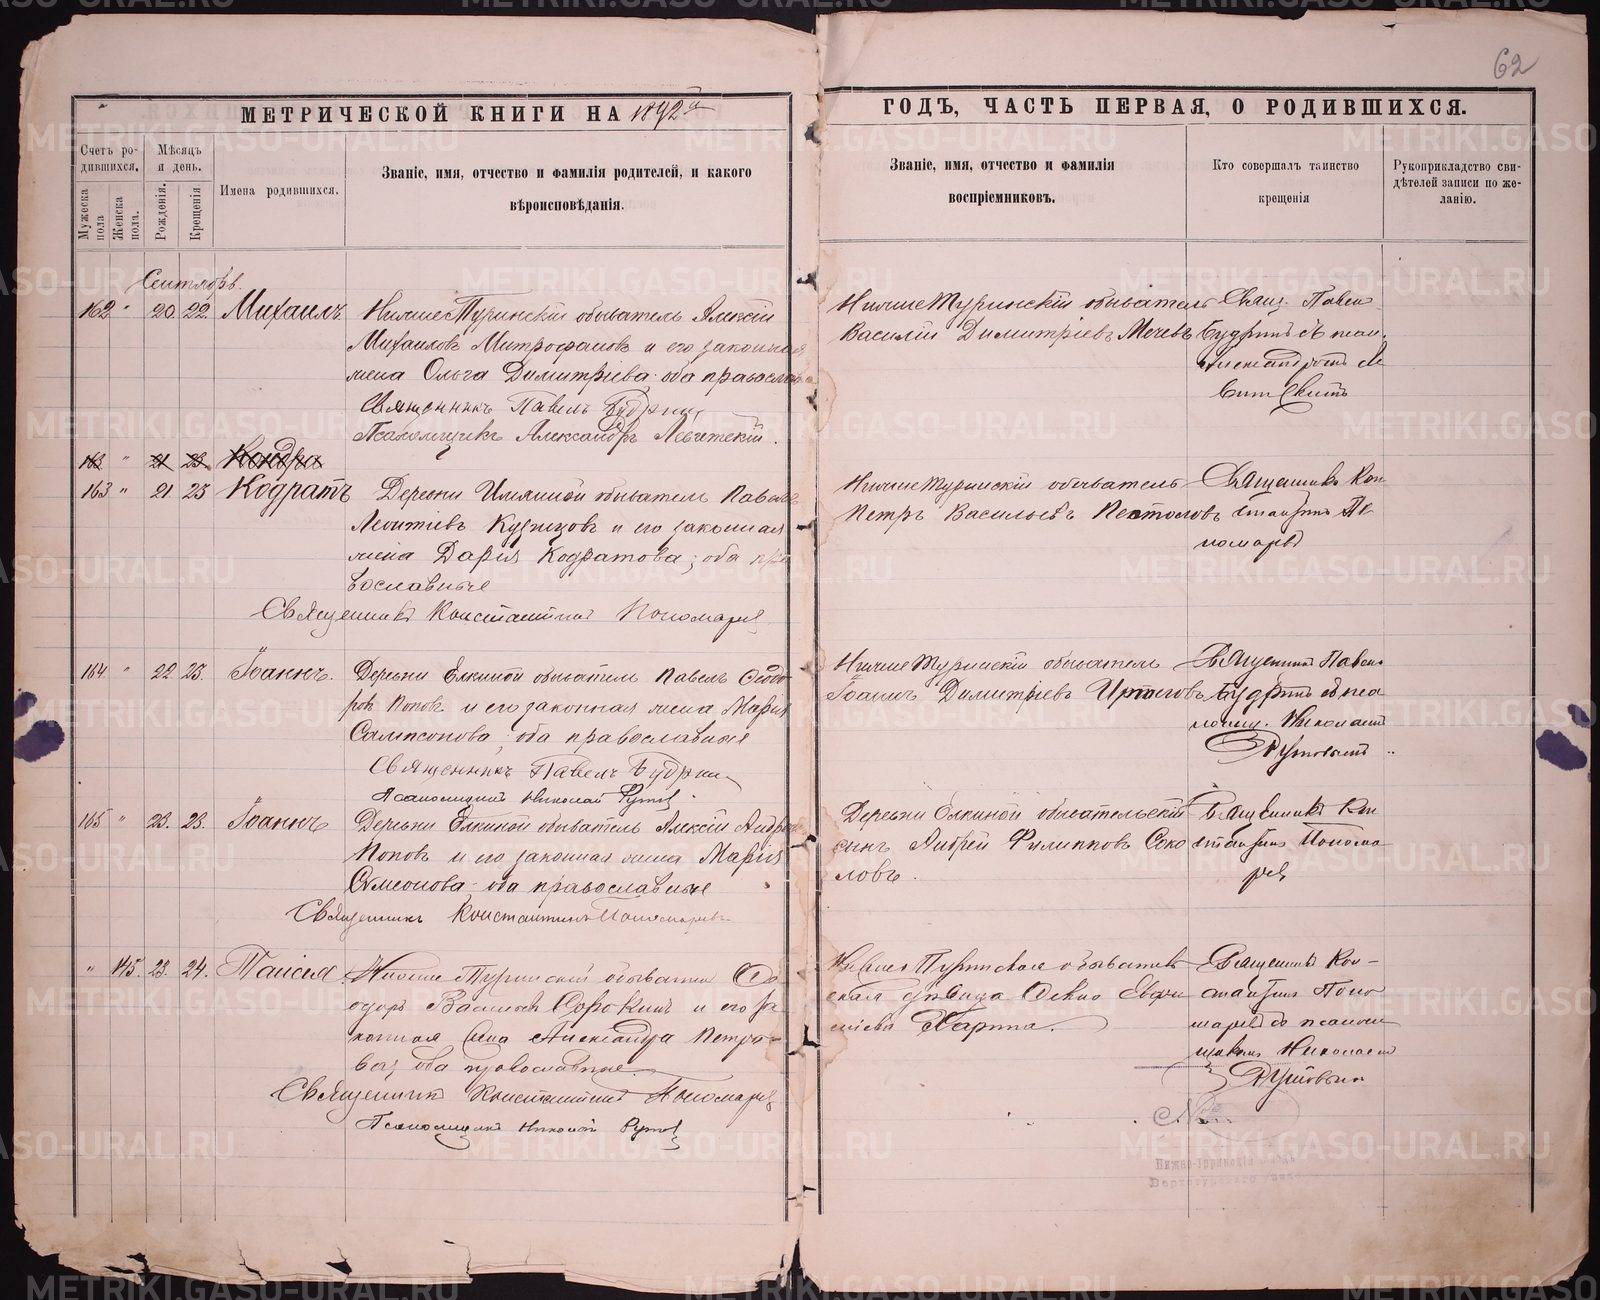 62
МЕТРИЧЕСКОЙ КНИГИ НА 1892 й
ГОДЪ, ЧАСТЬ ПЕРВАЯ, О РОДИВШИХСЯ.
Счетъ родившихся.
Мужеска пола
Женска пола.
Мѣсяцъ и день.
Рожденія.
Крещенія
Имена родившихся.
Званіе, имя, отчество и фамилія родителей, и какого
вѣроисповѣданія.
Званіе, имя, отчество и фамилія
воспріемниковъ.
Кто совершалъ таинство
крещенія
Рукоприкладство сви-
дѣтелей записи по же-
ланію.
Сентябрь.
162 " 20 22 Михаилъ
НижнеТуринскій обыватель Алексій
Михаиловъ Митрофановъ и его законная
жена Ольга Димитріева оба православ
Священникъ Павелъ Будринъ
Псаломщикъ Александръ Левитскій.
НижнеТуринскій обыватель
Василій Димитріевъ Мочевъ
Свящ. Павел
Будринъ съ псал.
163 " 21 23 Кондра
163 " 21 23 Кодратъ
Деревни Имянной обыватель Павелъ
Леонтіевъ Кузнецовъ и его законная
жена Дарія Кодратова; оба пра
вославные
Священникъ Константинъ Пономаревъ
НижнеТуринскій обыватель
Петръ Васильевъ Пестоловъ
Священникъ Кон
стантинъ По
номаревъ
164 " 22 23. Іоаннъ.
Деревни Елкиной обыватель Павелъ Ѳеодо
ровъ Поповъ и его законная жена Марія
Сампсонова; оба православные
Священникъ Павелъ Будринъ
Псаломщикъ Николай
НижнеТуринскій обыватель
Іоаннъ Димитріевъ
Священникъ Павелъ
Будринъ съ пса
ломщ. Николаемъ
165 " 23. 23. Іоаннъ
Деревни Елкиной обыватель Алексій Андре
Поповъ и его законная жена Марія
Симеонова оба православные
Священникъ Константинъ Пономаревъ
Деревни Елкиной обывательскій
сынъ Андрей Филипповъ Соко
ловъ.
Священникъ Кон
стантинъ Понома
ревъ
" 145. 23. 24. Таисія
Нижне Туринскій обыватель Ѳе
одоръ Васильевъ Сорокинъ и его за
конная жена Александра Петро-
ва; оба православные.
Священникъ Константинъ Пономаревъ
Псаломщикъ Николай
Нижне Туринская обыватель
ская дѣвица
Священникъ Кон-
стантинъ Поно
маревъ съ псалом
щикомъ Николаемъ
№
METRIKI.GASO-URAL.RU